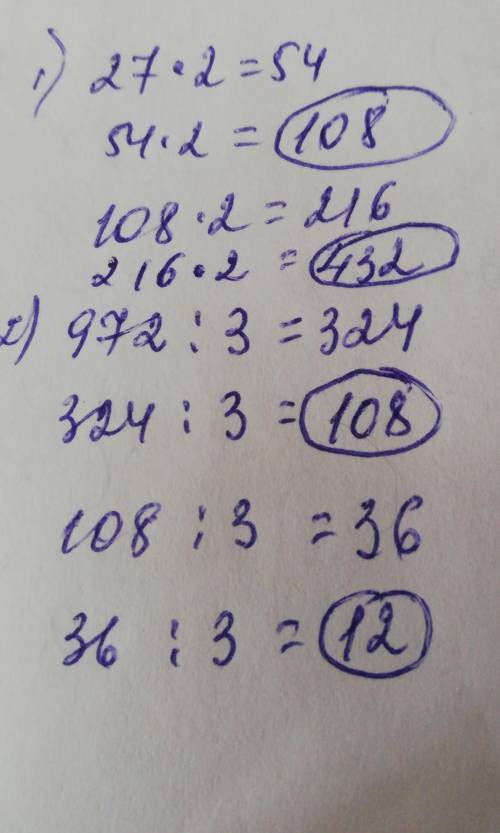 1) 27·2=54
54·2=108
108·2=216
216·2=432
2) 972:3=324
324:3=108
108:3=36
36:3=12